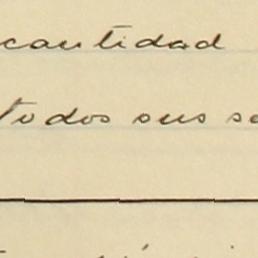 cantidad
Todos sus